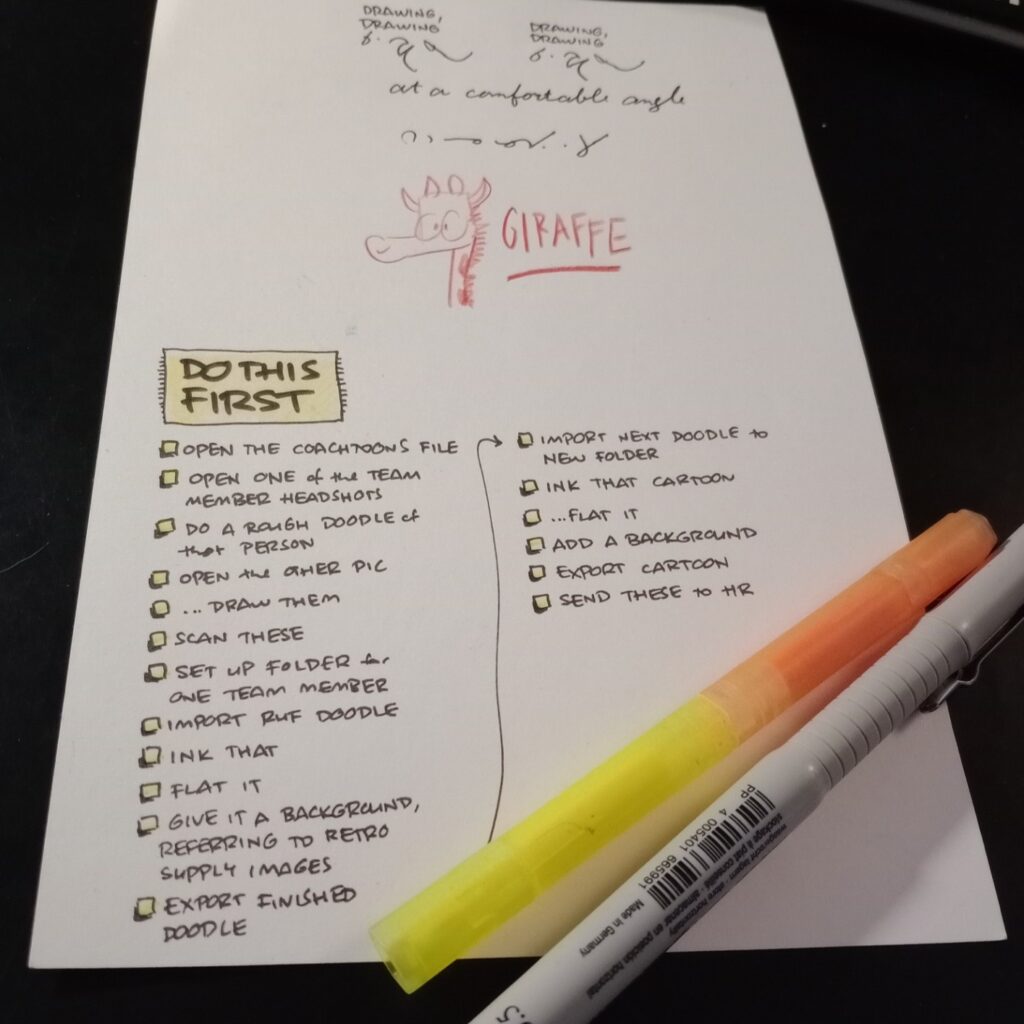 DRAWING,
DRAWING
DRAWING,
DRAWING
at a comfortable angle
GIRAFFE
DO THIS
FIRST
OPEN THE COACHTOONS FILE
OPEN ONE of the TEAM
MEMBER HEADSHOTS
DO A ROUGH DOODLE of
that PERSON
OPEN the OTHER PIC
... DRAW THEM
SCAN THESE
SET UP FOLDER for
ONE TEAM MEMBER
IMPORT RUF DOODLE
INK THAT
FLAT IT
GIVE IT A BACKGROUND,
REFERRING TO RETRO
SUPPLY IMAGES
EXPORT FINISHED
DOODLE
IMPORT NEXT DOODLE to
NEW FOLDER
INK THAT CARTOON
...FLAT IT
ADD A BACKGROUND
EXPORT CARTOON
SEND THESE to HR
PP
4 005401 665991
Made in Germany
store horizontally
stockage à plat conseillé · almacenar en posición horizontal